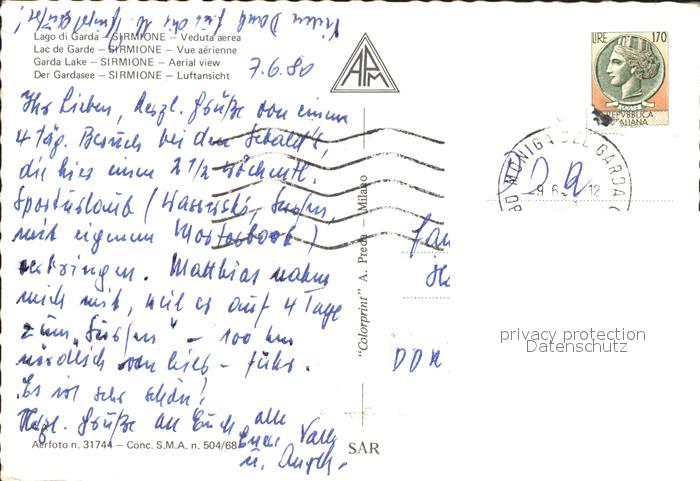 Vielen Dank für die
Lago di Garda – SIRMIONE – Veduta aerea
Lac de Garde – SIRMIONE – Vue aérienne
Garda Lake – SIRMIONE – Aerial view
Der Gardasee – SIRMIONE – Luftansicht
7.6.80
APM
LIRE 170
REPVBBLICA
ITALIANA
Ihr Lieben, herzl. Grüße von einem
4 täg. Besuch bei den
die hier einen 2 1/2 wöchentl.
Sporturlaub (Wasserski, Surfen,
mit eigenem Motorboot)
verbringen. Matthias nahm
mich mit, weil er auf 4 Tage
zum „Surfen" – 100 km
nördlich von hier – fuhr.
Es ist sehr schön!
Hzgl. Grüße an Euch alle
Euer
u.
MONIGA DEL GARDA
9 6 12
Fam
DDR
"Colorprint" A. Preda – Milano
privacy protection
Datenschutz
Aerfoto n. 31744 – Conc. S.M.A. n. 504/68
SAR